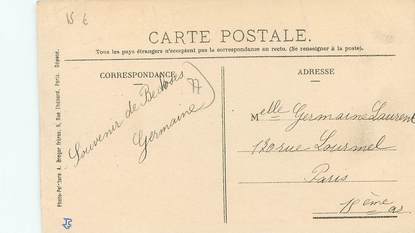 15 €
CARTE POSTALE.
Tous les pays étrangers n'acceptent pas la correspondance au recto. (Se renseigner à la poste).
CORRESPONDANCE
ADRESSE
Souvenir de
77
Germaine
Melle Germaine Laurent
130 rue Lourmel
Paris
15ème ar
Photo-Peinture A. Breger Frères. 9, Rue Thénard, Paris.